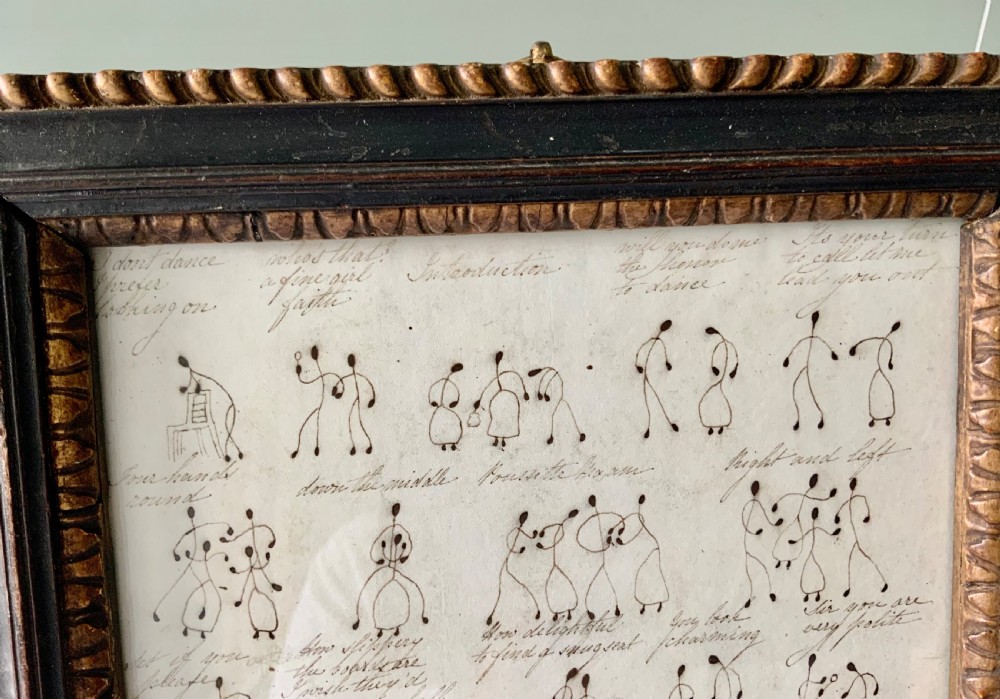 I dont dance
I prefer
looking on
whos that?
a fine girl
faith
Introduction
will you do me
the honor
to dance
Its your turn
to call let me
lead you out
Four hands
round
down the middle
Poussette
Right and left
if you
please
How slippery
the boards are
I wish they'd
How delightful
to find a snug seat
You look
charming
Sir you are
very polite